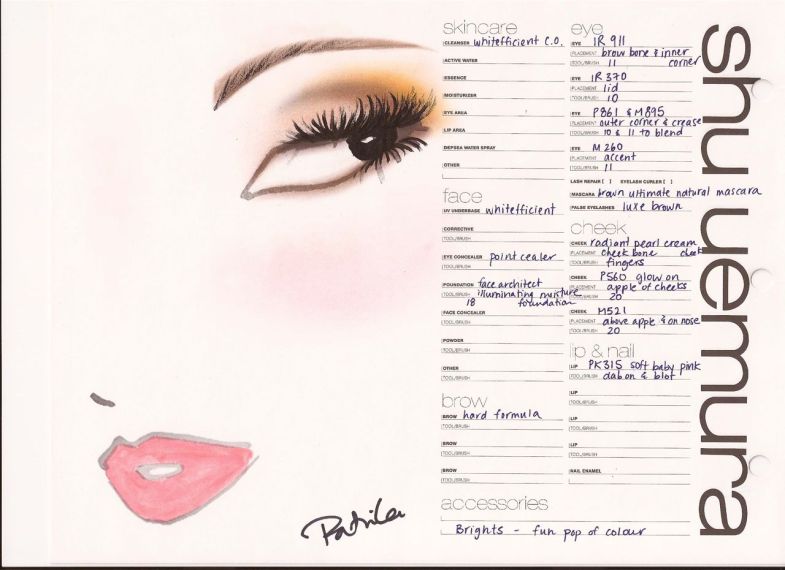 skincare
CLEANSER whitefficient C.O.
ACTIVE WATER
ESSENCE
MOISTURIZER
EYE AREA
LIP AREA
DEPSEA WATER SPRAY
OTHER
face
UV UNDERBASE whitefficient
CORRECTIVE
TOOL/BRUSH
EYE CONCEALER pointcealer
TOOL/BRUSH
FOUNDATION face architect
TOOL/BRUSH illuminating moisture
18 foundation
FACE CONCEALER
TOOL/BRUSH
POWDER
TOOL/BRUSH
OTHER
TOOL/BRUSH
brow
BROW hard formula
TOOL/BRUSH
BROW
TOOL/BRUSH
BROW
TOOL/BRUSH
eye
EYE IR 911
PLACEMENT brow bone & inner
TOOL/BRUSH 11 corner
EYE IR 370
PLACEMENT lid
TOOL/BRUSH 10
EYE P861 & M895
PLACEMENT outer corner & crease
TOOL/BRUSH 10 & 11 to blend
EYE M 260
PLACEMENT accent
TOOL/BRUSH 11
LASH REPAIR [ ] EYELASH CURLER [ ]
MASCARA brown ultimate natural mascara
FALSE EYELASHES luxe brown
cheek
CHEEK radiant pearl cream
PLACEMENT cheek bone
TOOL/BRUSH fingers
CHEEK P560 glow on
PLACEMENT apple of cheeks
TOOL/BRUSH 20
CHEEK M521
PLACEMENT above apple & on nose
TOOL/BRUSH 20
lip & nail
LIP PK315 soft baby pink
TOOL/BRUSH dab on & blot
LIP
TOOL/BRUSH
LIP
TOOL/BRUSH
LIP
TOOL/BRUSH
NAIL ENAMEL
accessories
Brights - fun pop of colour
shu uemura